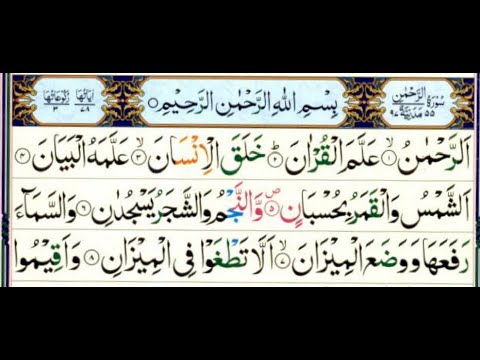 سُوْرَةُ الرَّحْمٰنِ مَدَنِيَّةٌ ٥٥ ٩٧
بِسْمِ اللّٰهِ الرَّحْمٰنِ الرَّحِيْمِ
اٰيَاتُهَا ٧٨ رُكُوْعَاتُهَا ٣
اَلرَّحْمٰنُ ۙ‏﴿۱﴾ عَلَّمَ الْقُرْاٰنَ ؕ‏﴿۲﴾ خَلَقَ الْاِنْسَانَ ۙ‏﴿۳﴾ عَلَّمَهُ الْبَيَانَ ‏﴿۴﴾
اَلشَّمْسُ وَالْقَمَرُ بِحُسْبَانٍ ۪‏﴿۵﴾ وَّالنَّجْمُ وَالشَّجَرُ يَسْجُدٰنِ ‏﴿۶﴾ وَالسَّمَآءَ
رَفَعَهَا وَوَضَعَ الْمِيْزَانَ ۙ‏﴿۷﴾ اَلَّا تَطْغَوْا فِى الْمِيْزَانِ ‏﴿۸﴾ وَاَقِيْمُوا